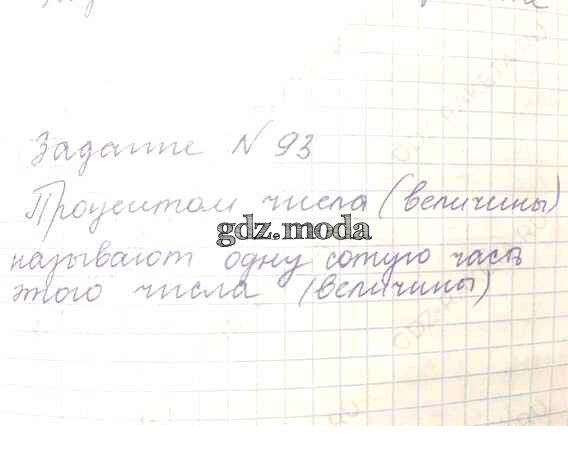 Задание N 93
Процентом числа (величины)
gdz.moda
называют одну сотую часть
этого числа (величины)